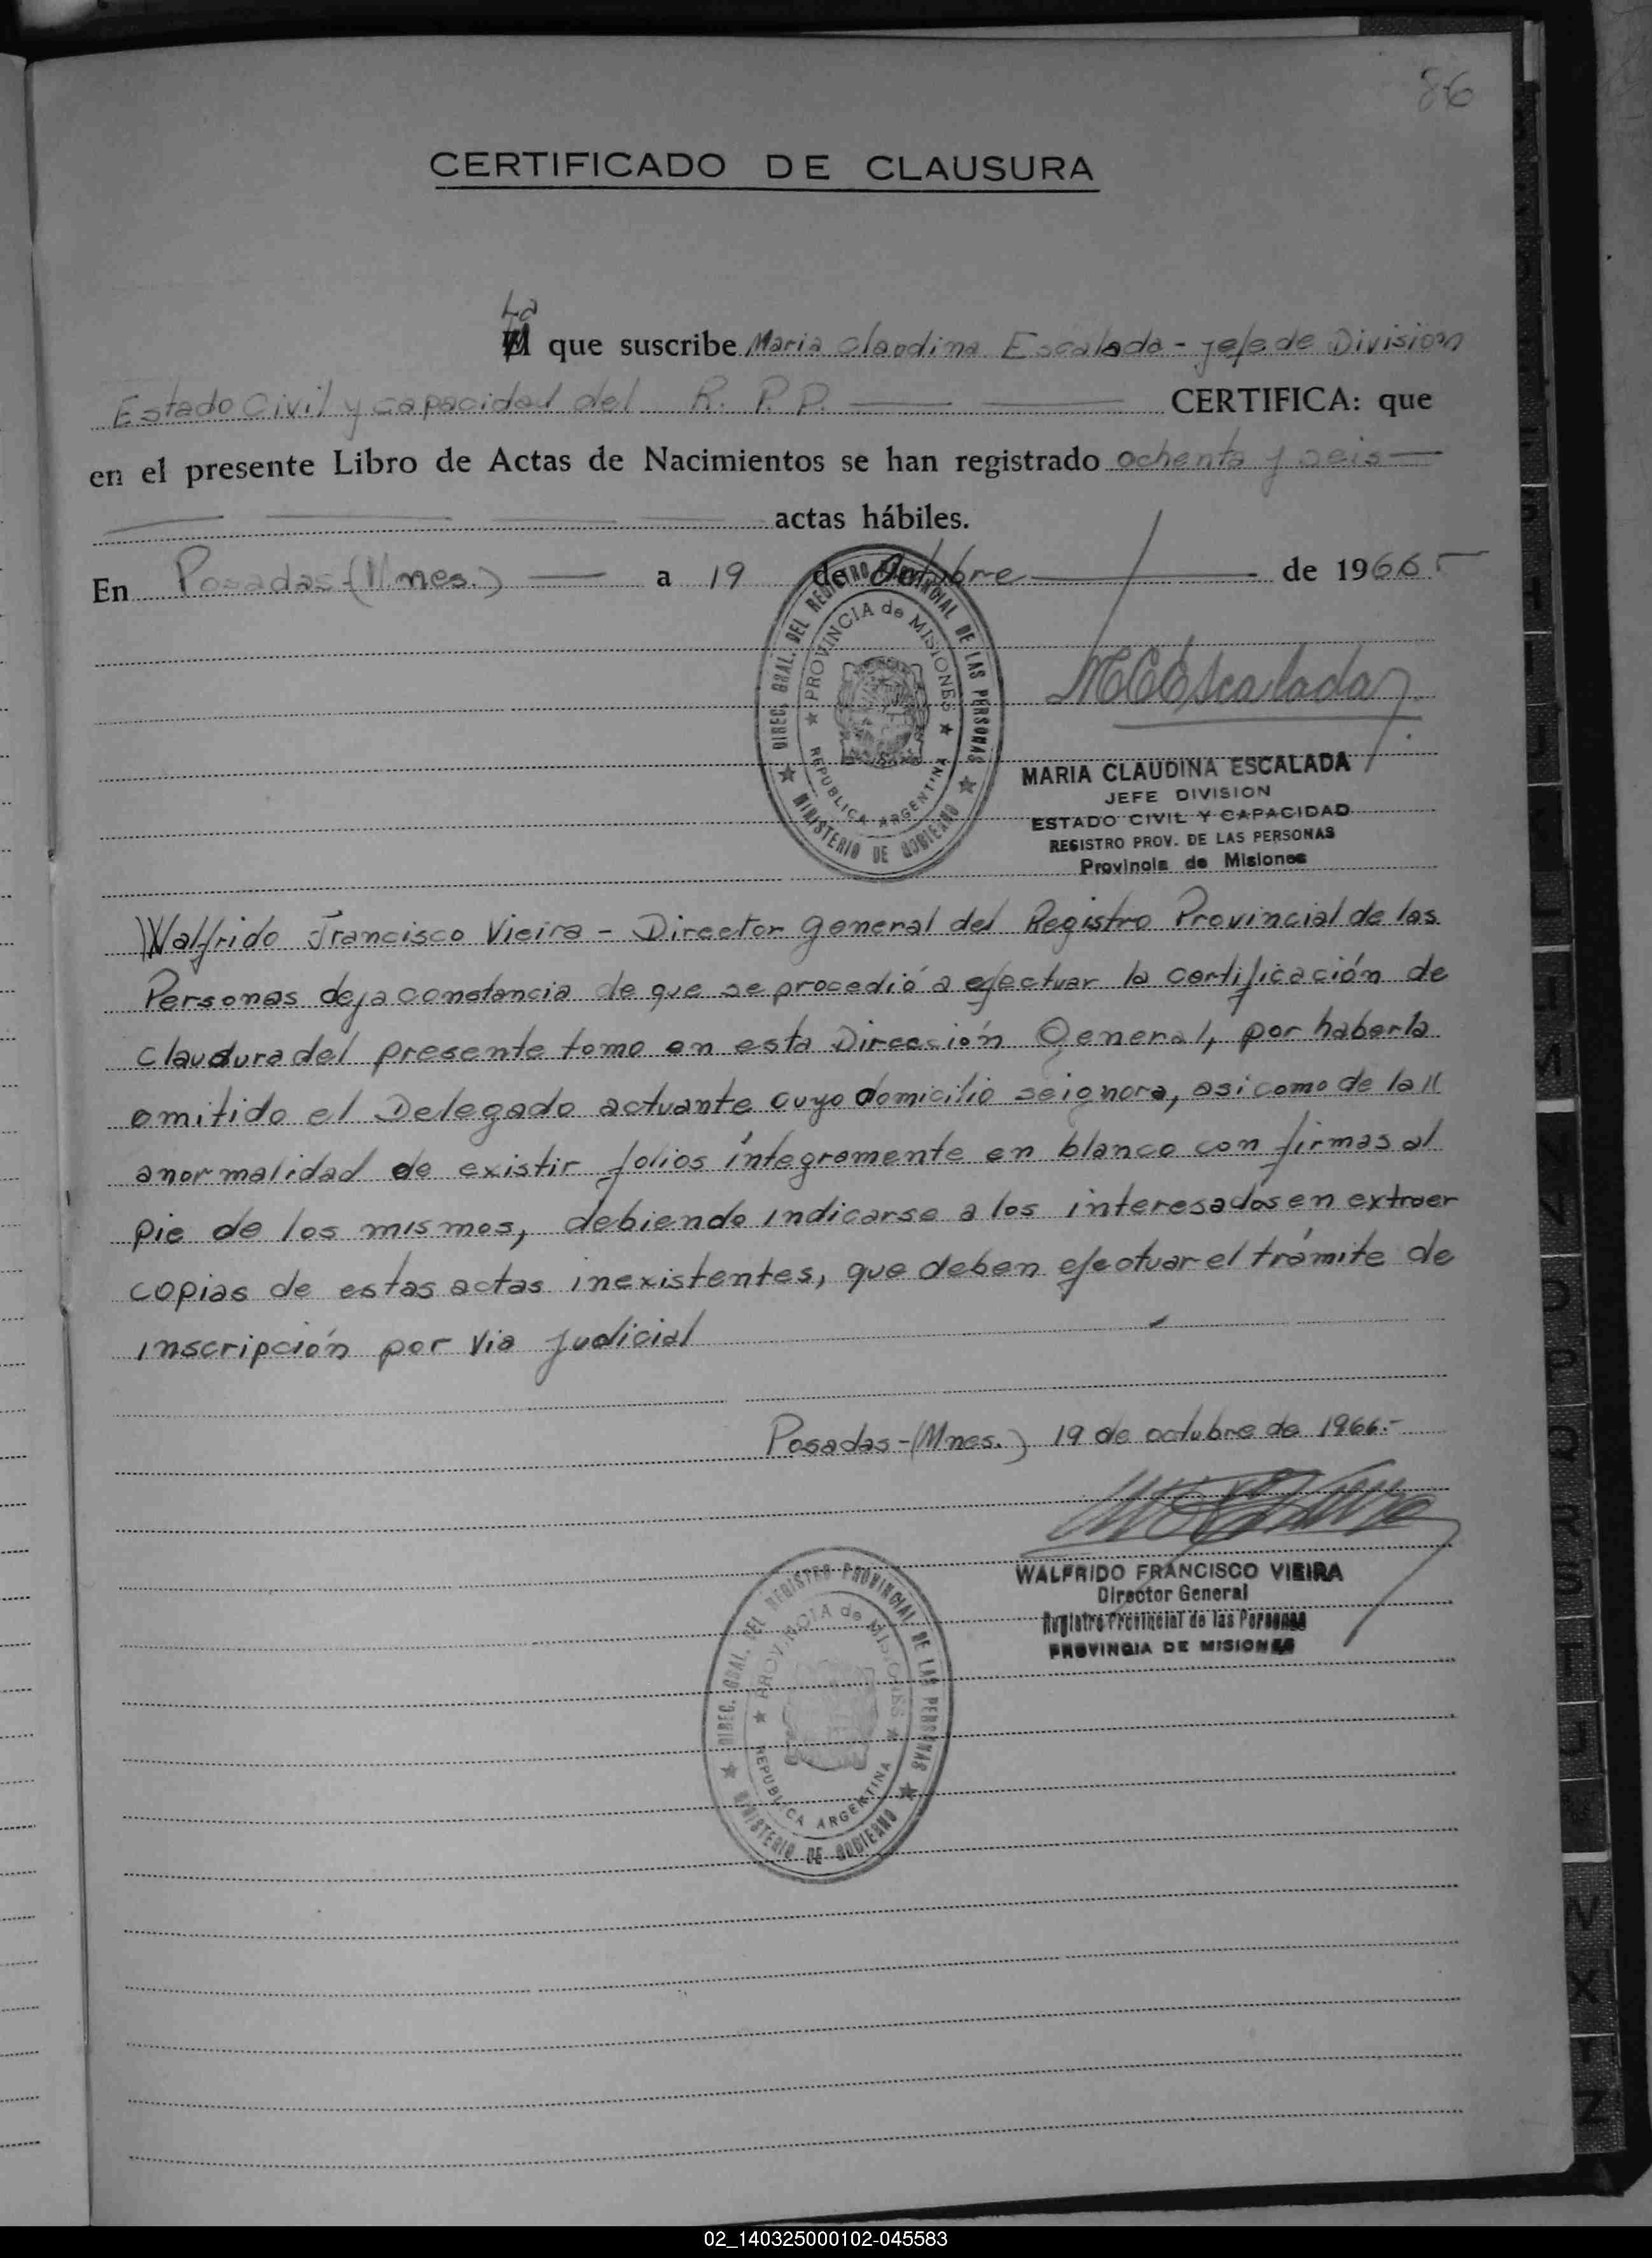 86
CERTIFICADO DE CLAUSURA
La
El que suscribe Maria Claudina Escalada - jefe de Division
Estado Civil y capacidad del R. P. P. — — CERTIFICA: que
en el presente Libro de Actas de Nacimientos se han registrado ochenta y seis —
— — — — actas hábiles.
En Posadas - (Mnes.) — a 19 de Octubre — de 1966.-
DIREC. GRAL. DEL REGISTRO PROVINCIAL DE LAS PERSONAS
★ PROVINCIA de MISIONES ★
REPUBLICA ARGENTINA
★ MINISTERIO DE GOBIERNO ★
MCEscalada
MARIA CLAUDINA ESCALADA
JEFE DIVISION
ESTADO CIVIL Y CAPACIDAD
REGISTRO PROV. DE LAS PERSONAS
Provincia de Misiones
Walfrido Francisco Vieira - Director general del Registro Provincial de las
Personas deja constancia de que se procedió a efectuar la certificación de
clausura del presente tomo en esta Dirección General, por haberla
omitido el Delegado actuante cuyo domicilio se ignora, asi como de la //
anormalidad de existir folios íntegramente en blanco con firmas al
pie de los mismos, debiendo indicarse a los interesados en extraer
copias de estas actas inexistentes, que deben efectuar el trámite de
inscripción por via judicial
Posadas - (Mnes.) 19 de octubre de 1966.-
WALFRIDO FRANCISCO VIEIRA
Director General
Registro Provincial de las Personas
PROVINCIA DE MISIONES
DIREC. GRAL. DEL REGISTRO PROVINCIAL DE LAS PERSONAS
★ PROVINCIA de MISIONES ★
REPUBLICA ARGENTINA
★ MINISTERIO DE GOBIERNO ★
02_140325000102-045583